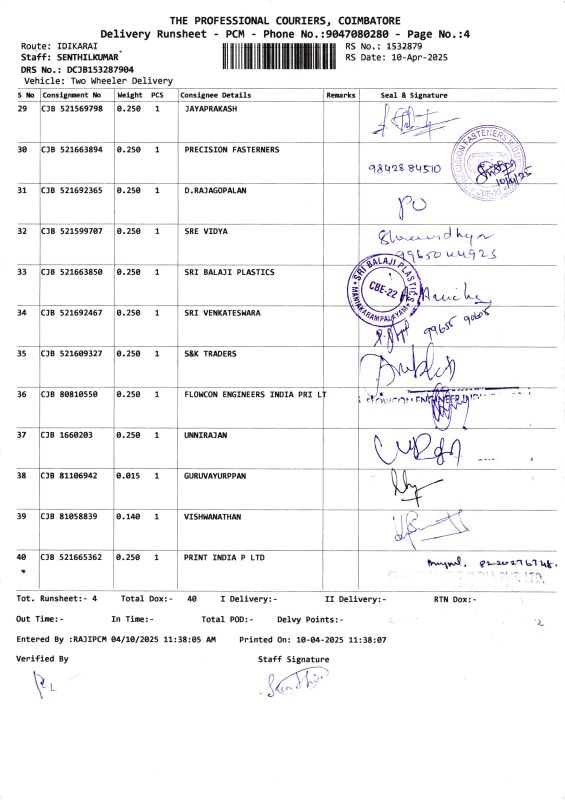 THE PROFESSIONAL COURIERS, COIMBATORE
Delivery Runsheet - PCM - Phone No.:9047080280 - Page No.:4
Route: IDIKARAI RS No.: 1532879
Staff: SENTHILKUMAR RS Date: 10-Apr-2025
DRS No.: DCJB153287904
Vehicle: Two Wheeler Delivery
S No Consignment No Weight PCS Consignee Details Remarks Seal & Signature
29 CJB 521569798 0.250 1 JAYAPRAKASH
30 CJB 521663894 0.250 1 PRECISION FASTERNERS
9842884510
31 CJB 521692365 0.250 1 D.RAJAGOPALAN
32 CJB 521599707 0.250 1 SRE VIDYA
9965044925
33 CJB 521663850 0.250 1 SRI BALAJI PLASTICS
SRI BALAJI PLASTICS
CBE-22
MANIAKARAMPALAYAM
34 CJB 521692467 0.250 1 SRI VENKATESWARA
35 CJB 521609327 0.250 1 S&K TRADERS
36 CJB 80810550 0.250 1 FLOWCON ENGINEERS INDIA PRI LT
37 CJB 1660203 0.250 1 UNNIRAJAN
38 CJB 81106942 0.015 1 GURUVAYURPPAN
39 CJB 81058839 0.140 1 VISHWANATHAN
40 CJB 521665362 0.250 1 PRINT INDIA P LTD
Tot. Runsheet:- 4 Total Dox:- 40 I Delivery:- II Delivery:- RTN Dox:-
Out Time:- In Time:- Total POD:- Delvy Points:-
Entered By :RAJIPCM 04/10/2025 11:38:05 AM Printed On: 10-04-2025 11:38:07
Verified By Staff Signature